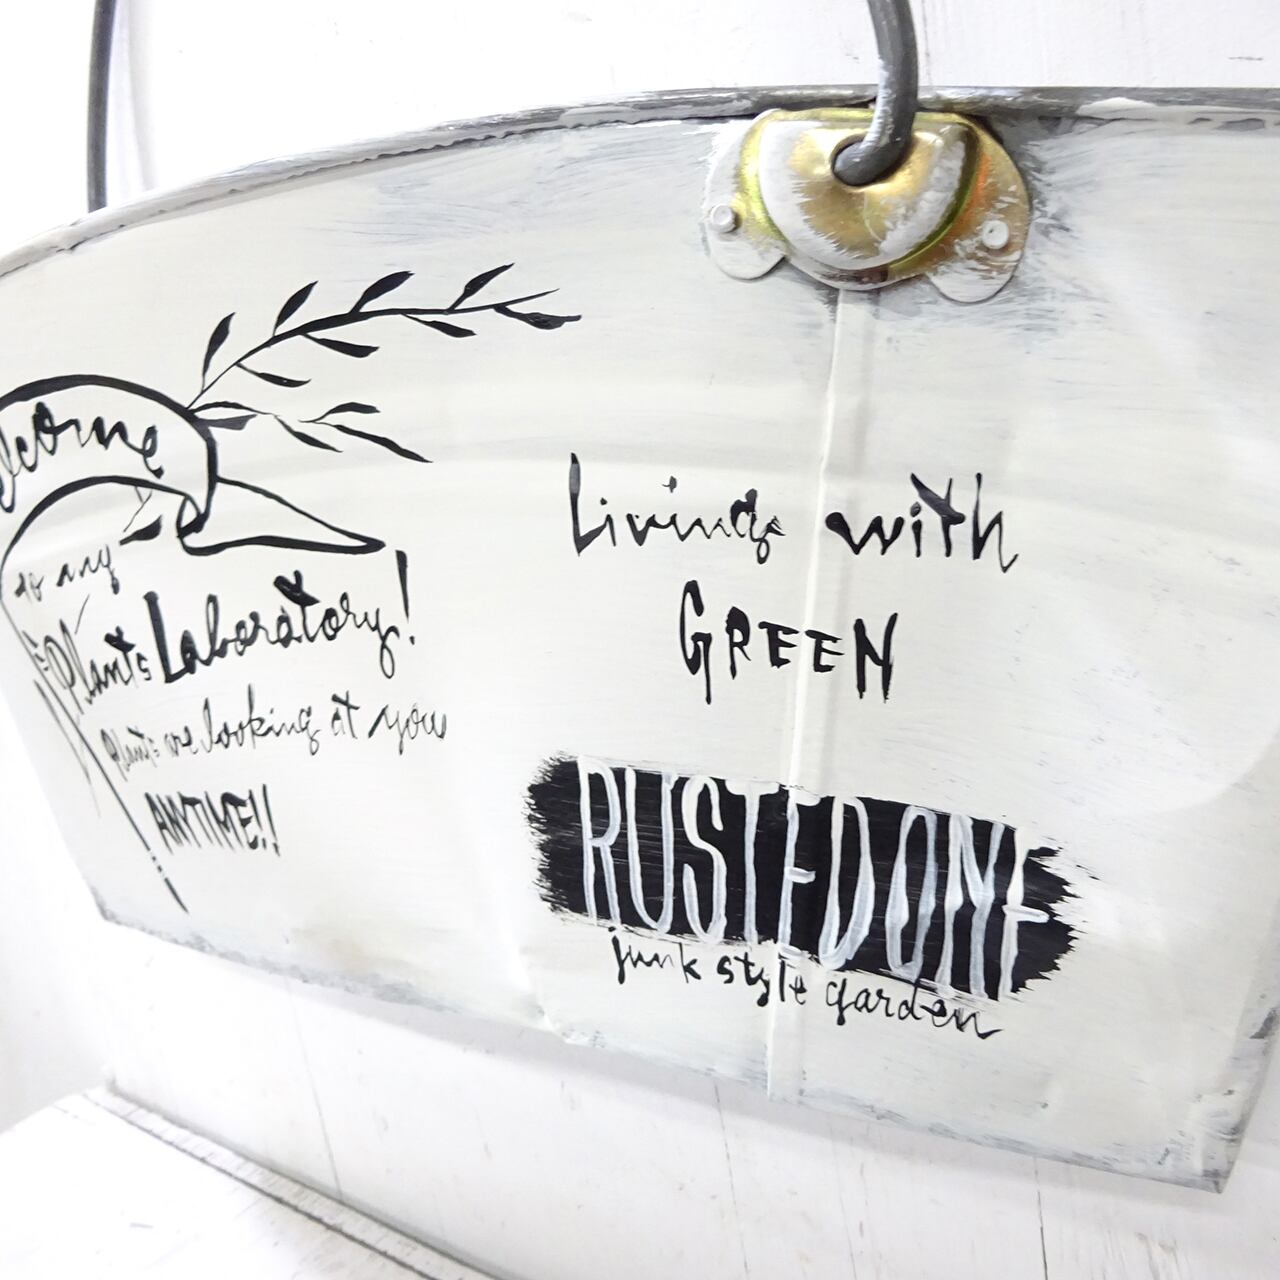 elcome
to any
Plants Laboratory!
Plants are looking at you
ANYTIME!!
Living with
GREEN
RUSTEDONE
junk style garden